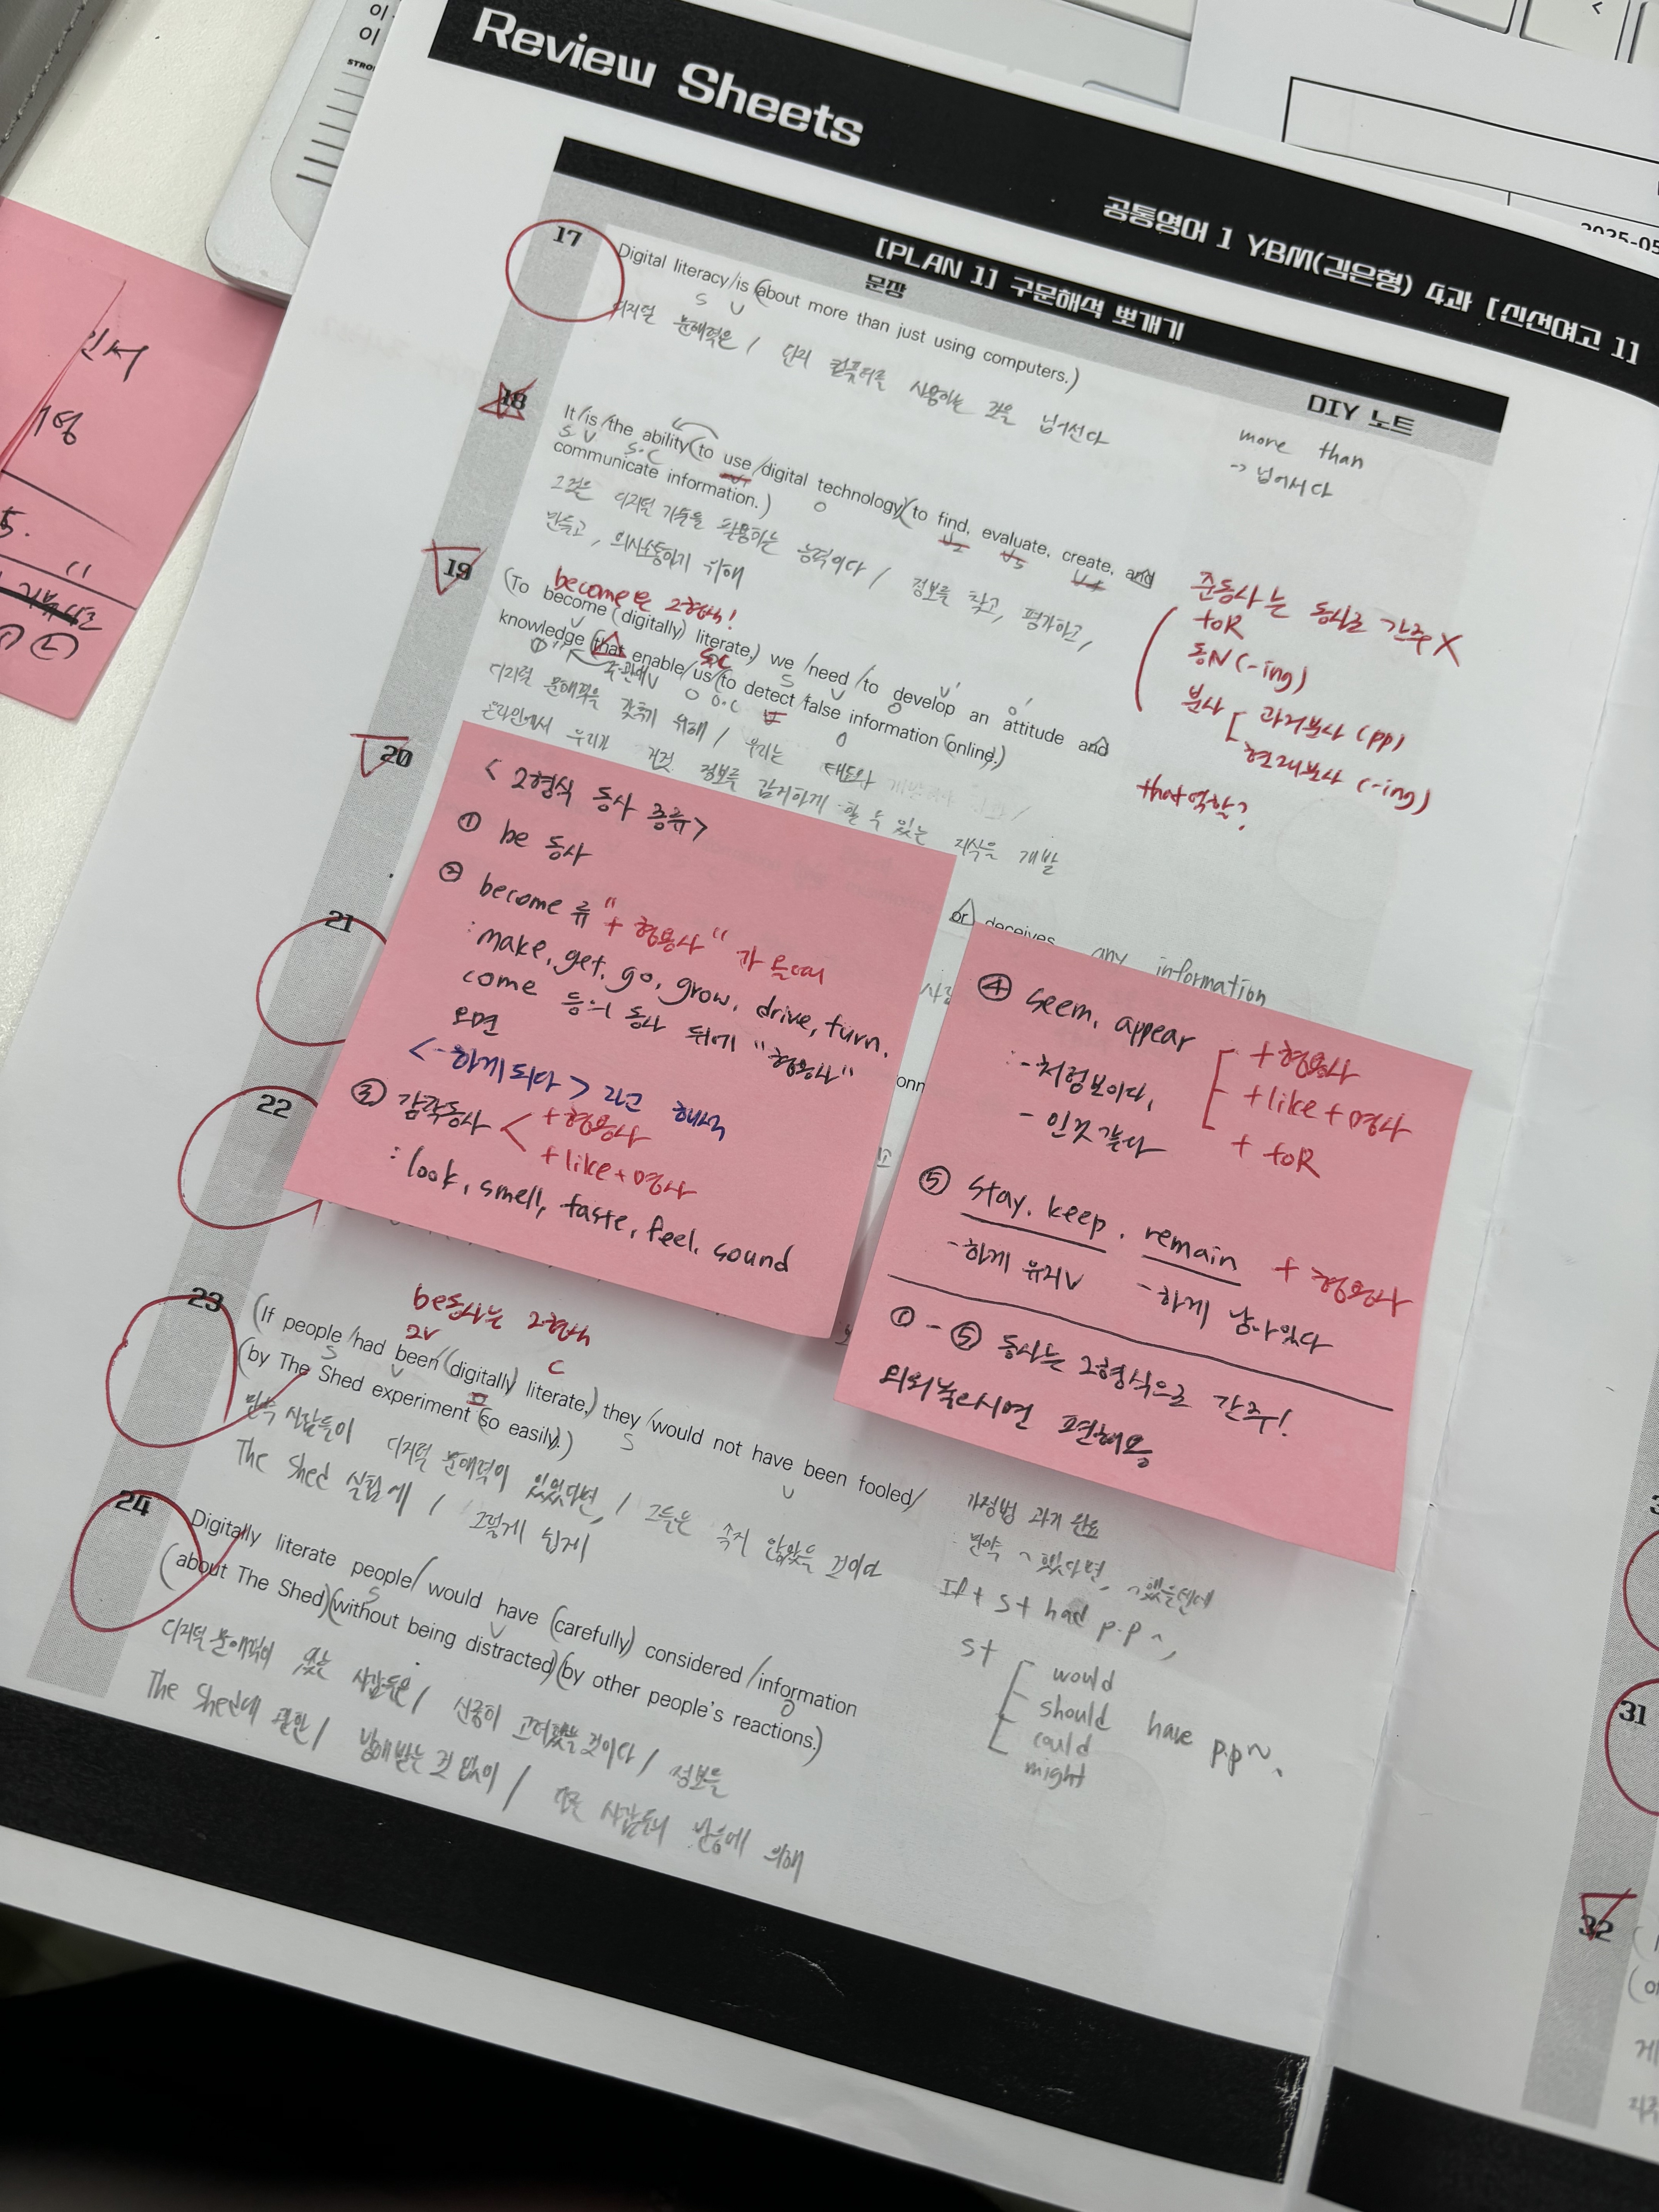 Review Sheets
공통영어 1 YBM(김은형) 4과 [신선여고 1]
[PLAN 1] 구문해석 뽀개기
문장
DIY 노트
17
Digital literacy/is (about more than just using computers.)
S V
디지털 문해력은 / 단지 컴퓨터를 사용하는 것을 넘어선다
more than
→ 넘어서다
18
It/is/the ability(to use/digital technology)(to find, evaluate, create, and
S V S.C O
communicate information.)
그것은 디지털 기술을 활용하는 능력이다 / 정보를 찾고, 평가하고,
만들고, 의사소통하기 위해
준동사는 동사로 간주 X
toR
동N (-ing)
분사 과거분사 (pp)
현재분사 (-ing)
19
become은 2형식!
(To become (digitally) literate,) we /need /to develop an attitude and
knowledge (that enable/us/(to detect/false information (online).)
주관대 V O O.C
디지털 문해력을 갖추기 위해 / 우리는 태도와
온라인에서 우리가 거짓 정보를 감지하게 할 수 있는 지식을 개발
that역할?
20
or deceives
any information
< 2형식 동사 종류 >
① be 동사
② become 류 "+ 형용사" 가 올때
: make, get, go, grow, drive, turn.
come 등의 동사 뒤에 "형용사"
오면
<-하게 되다> 라고 해석
③ 감각동사 < + 형용사
+ like + 명사
: look, smell, taste, feel, sound
④ seem, appear
+ 형용사
+ like + 명사
+ toR
: -처럼보이다,
- 인것 같다
⑤ stay. keep. remain + 형용사
-하게 유지V -하게 남아있다
① - ⑤ 동사는 2형식으로 간주!
외워놓으시면 편해용
21
22
23
be동사는 2형식
2V C
(If people /had been (digitally) literate,) they /would not have been fooled/
S V S V
(by The Shed experiment (so easily).)
만약 사람들이 디지털 문해력이 있었다면, / 그들은 속지 않았을 것이다
The Shed 실험에 / 그렇게 쉽게
가정법 과거 완료
: 만약 ~ 했다면, ~했을텐데
If + S + had p.p ~,
S +
would
should
could
might
have p.p ~.
24
Digitally literate people/ would have (carefully) considered /information
S V O
(about The Shed)(without being distracted)(by other people's reactions.)
디지털 문해력이 있는 사람들은 / 신중히 고려했을 것이다 / 정보를
The Shed에 관한 / 방해받는 것 없이 / 다른 사람들의 반응에 의해
31
32